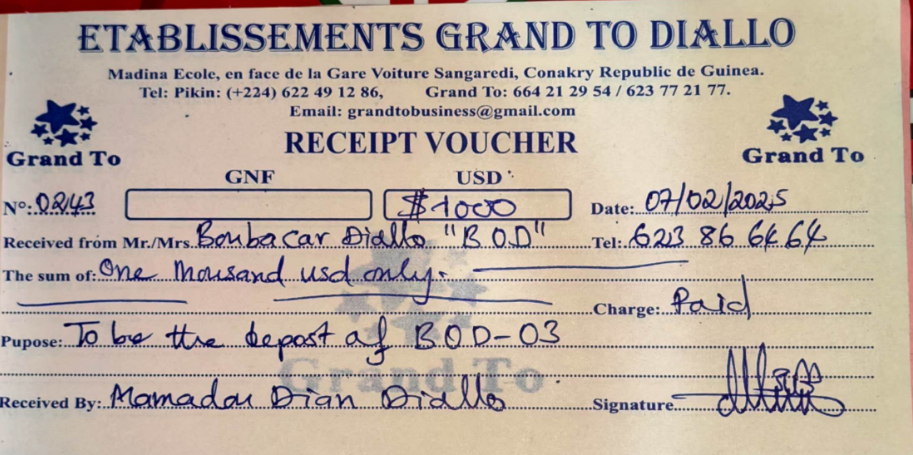 ETABLISSEMENTS GRAND TO DIALLO
Madina Ecole, en face de la Gare Voiture Sangaredi, Conakry Republic de Guinea.
Tel: Pikin: (+224) 622 49 12 86, Grand To: 664 21 29 54 / 623 77 21 77.
Email: grandtobusiness@gmail.com
Grand To RECEIPT VOUCHER Grand To
GNF USD
Nº: 0243 $1000 Date: 07/02/2025
Received from Mr./Mrs. Boubacar Diallo "BOD" Tel: 623 86 64 64
The sum of: One thousand usd only.
Charge: Paid
Pupose: To be the depost of BOD-03
Grand To
Received By: Mamadou Dian Diallo Signature